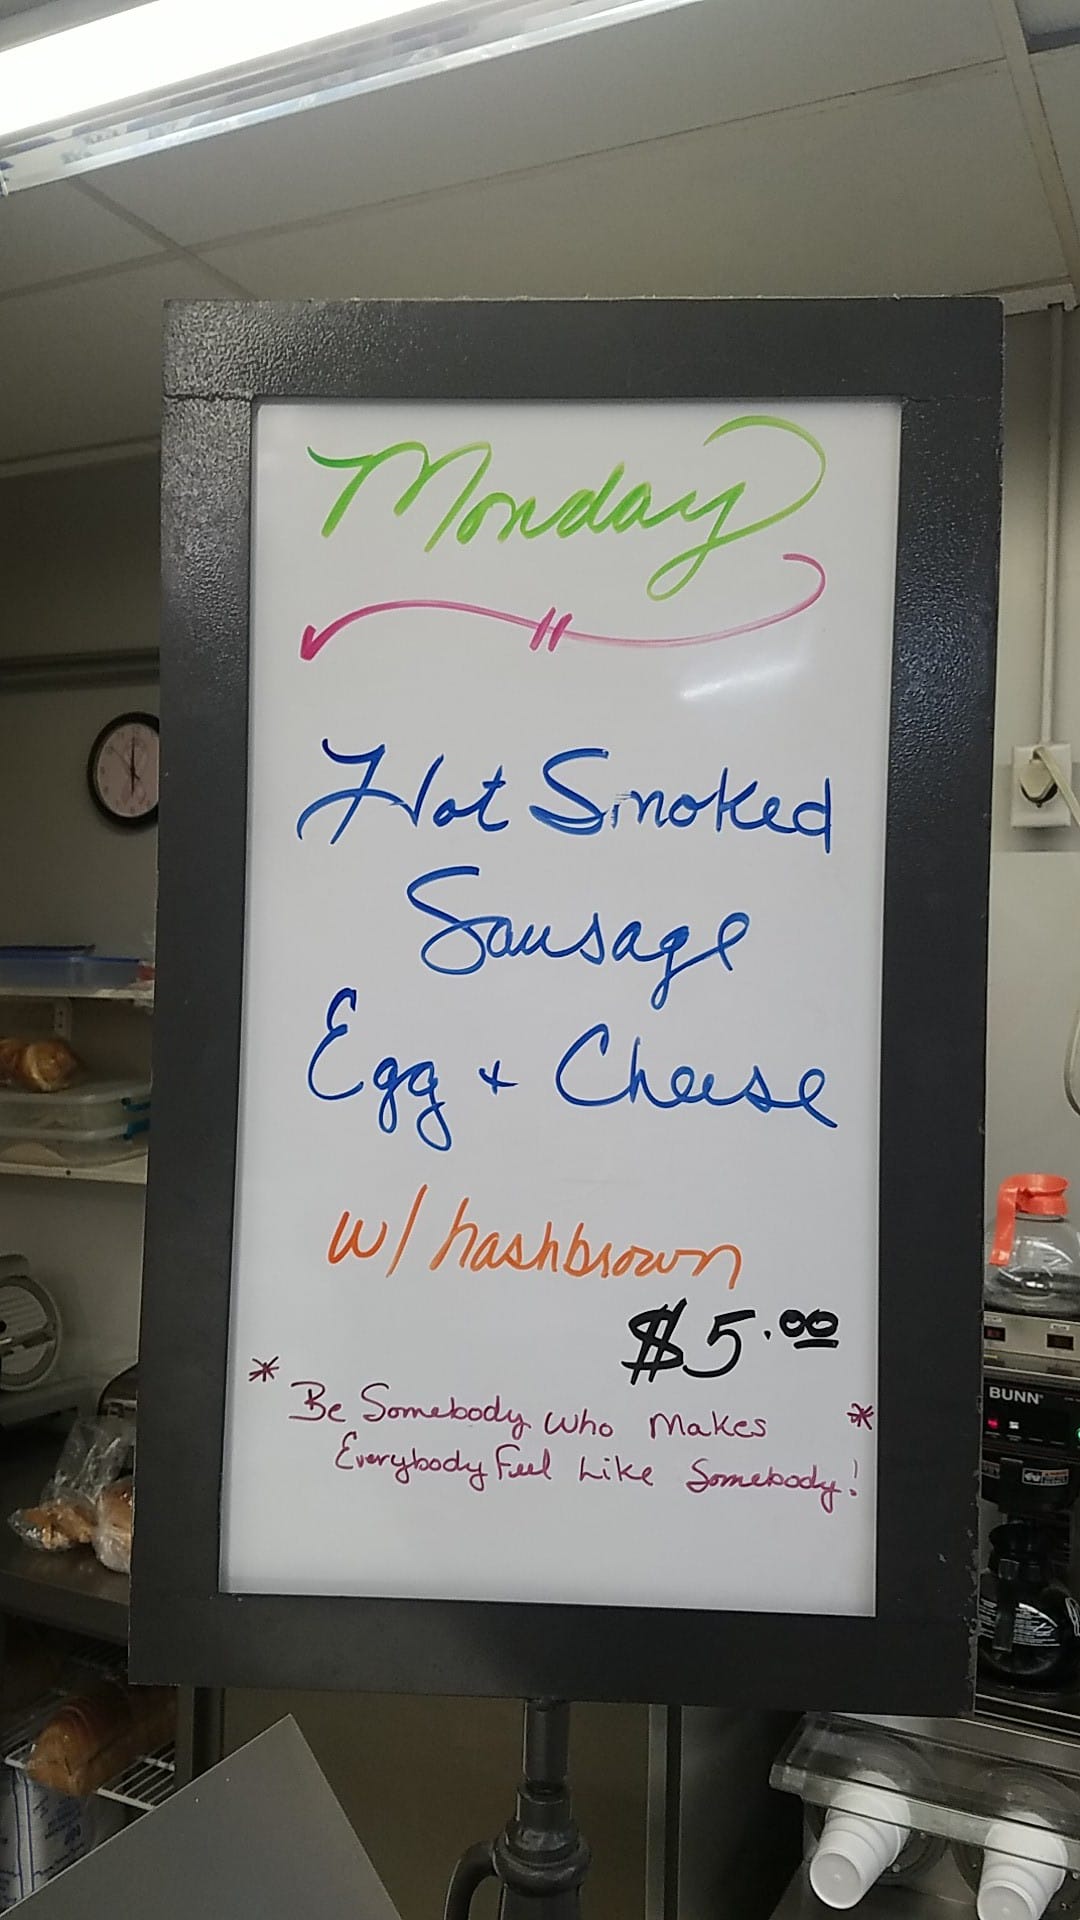 Monday
Hot Smoked
Sausage
Egg + Cheese
w/ hashbrown
$5.00
* Be Somebody who Makes *
Everybody Feel Like Somebody!
BUNN